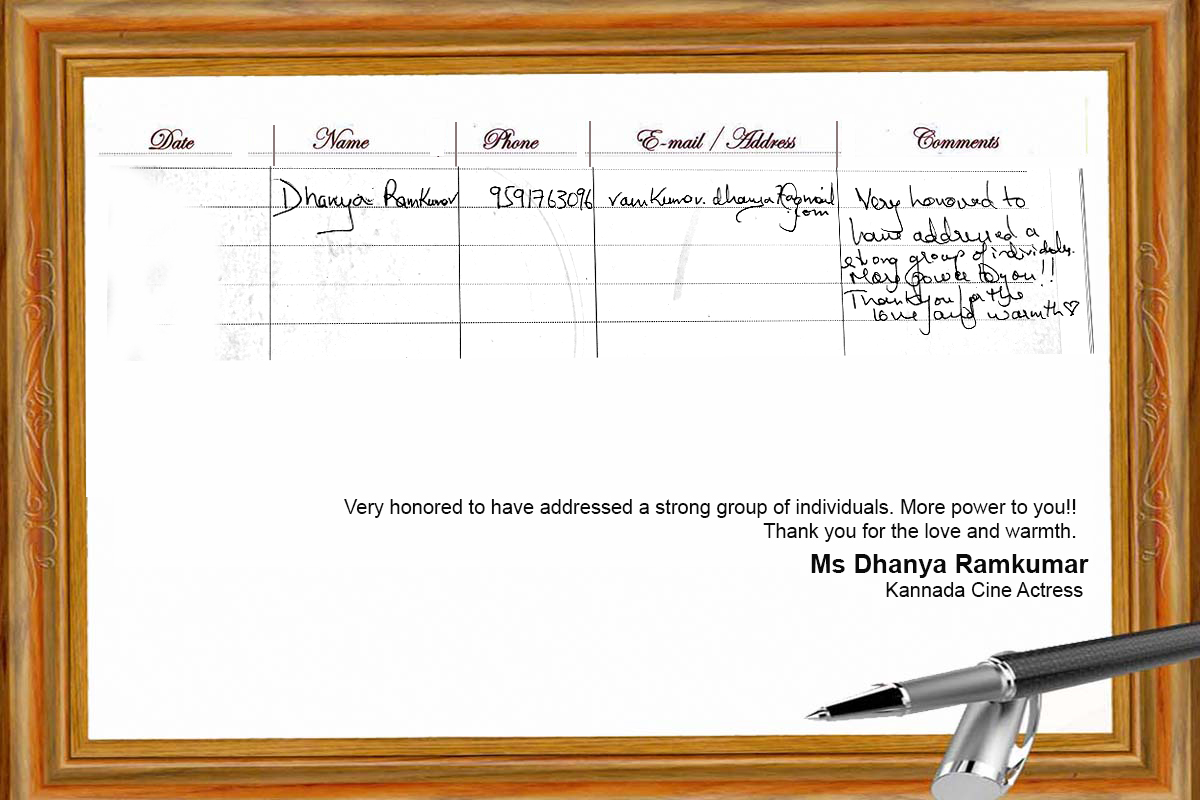 Date Name Phone E-mail / Address Comments
Dhanya Ramkumar 9591763096 ramkumar.dhanya7@gmail Very honoured to
.com
have addressed a
strong group of individuals.
More power to you!!
Thank you for the
love and warmth♡
Very honored to have addressed a strong group of individuals. More power to you!!
Thank you for the love and warmth.
Ms Dhanya Ramkumar
Kannada Cine Actress